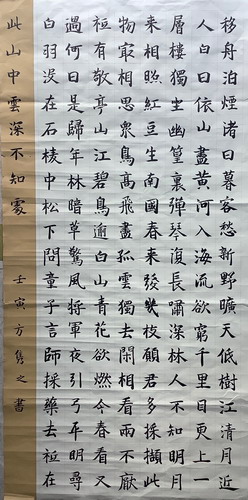 移舟泊煙渚日暮客愁新野曠天低樹江清月近
人白日依山盡黄河入海流欲窮千里目更上一
層樓獨坐幽篁裏弹琴復長嘯深林人不知明月
來相照紅豆生南國春來發幾枝顧君多採擷此
物寂相思衆鳥高飛盡孤雲獨去閑相看兩不厭
衹有敬亭山江碧鳥逾白山青花欲燃今春看又
過何日是歸年林暗草驚風將軍夜引弓平明尋
白羽没在石棱中松下問童子言師採藥去衹在
此山中雲深不知處 壬寅方雋之書